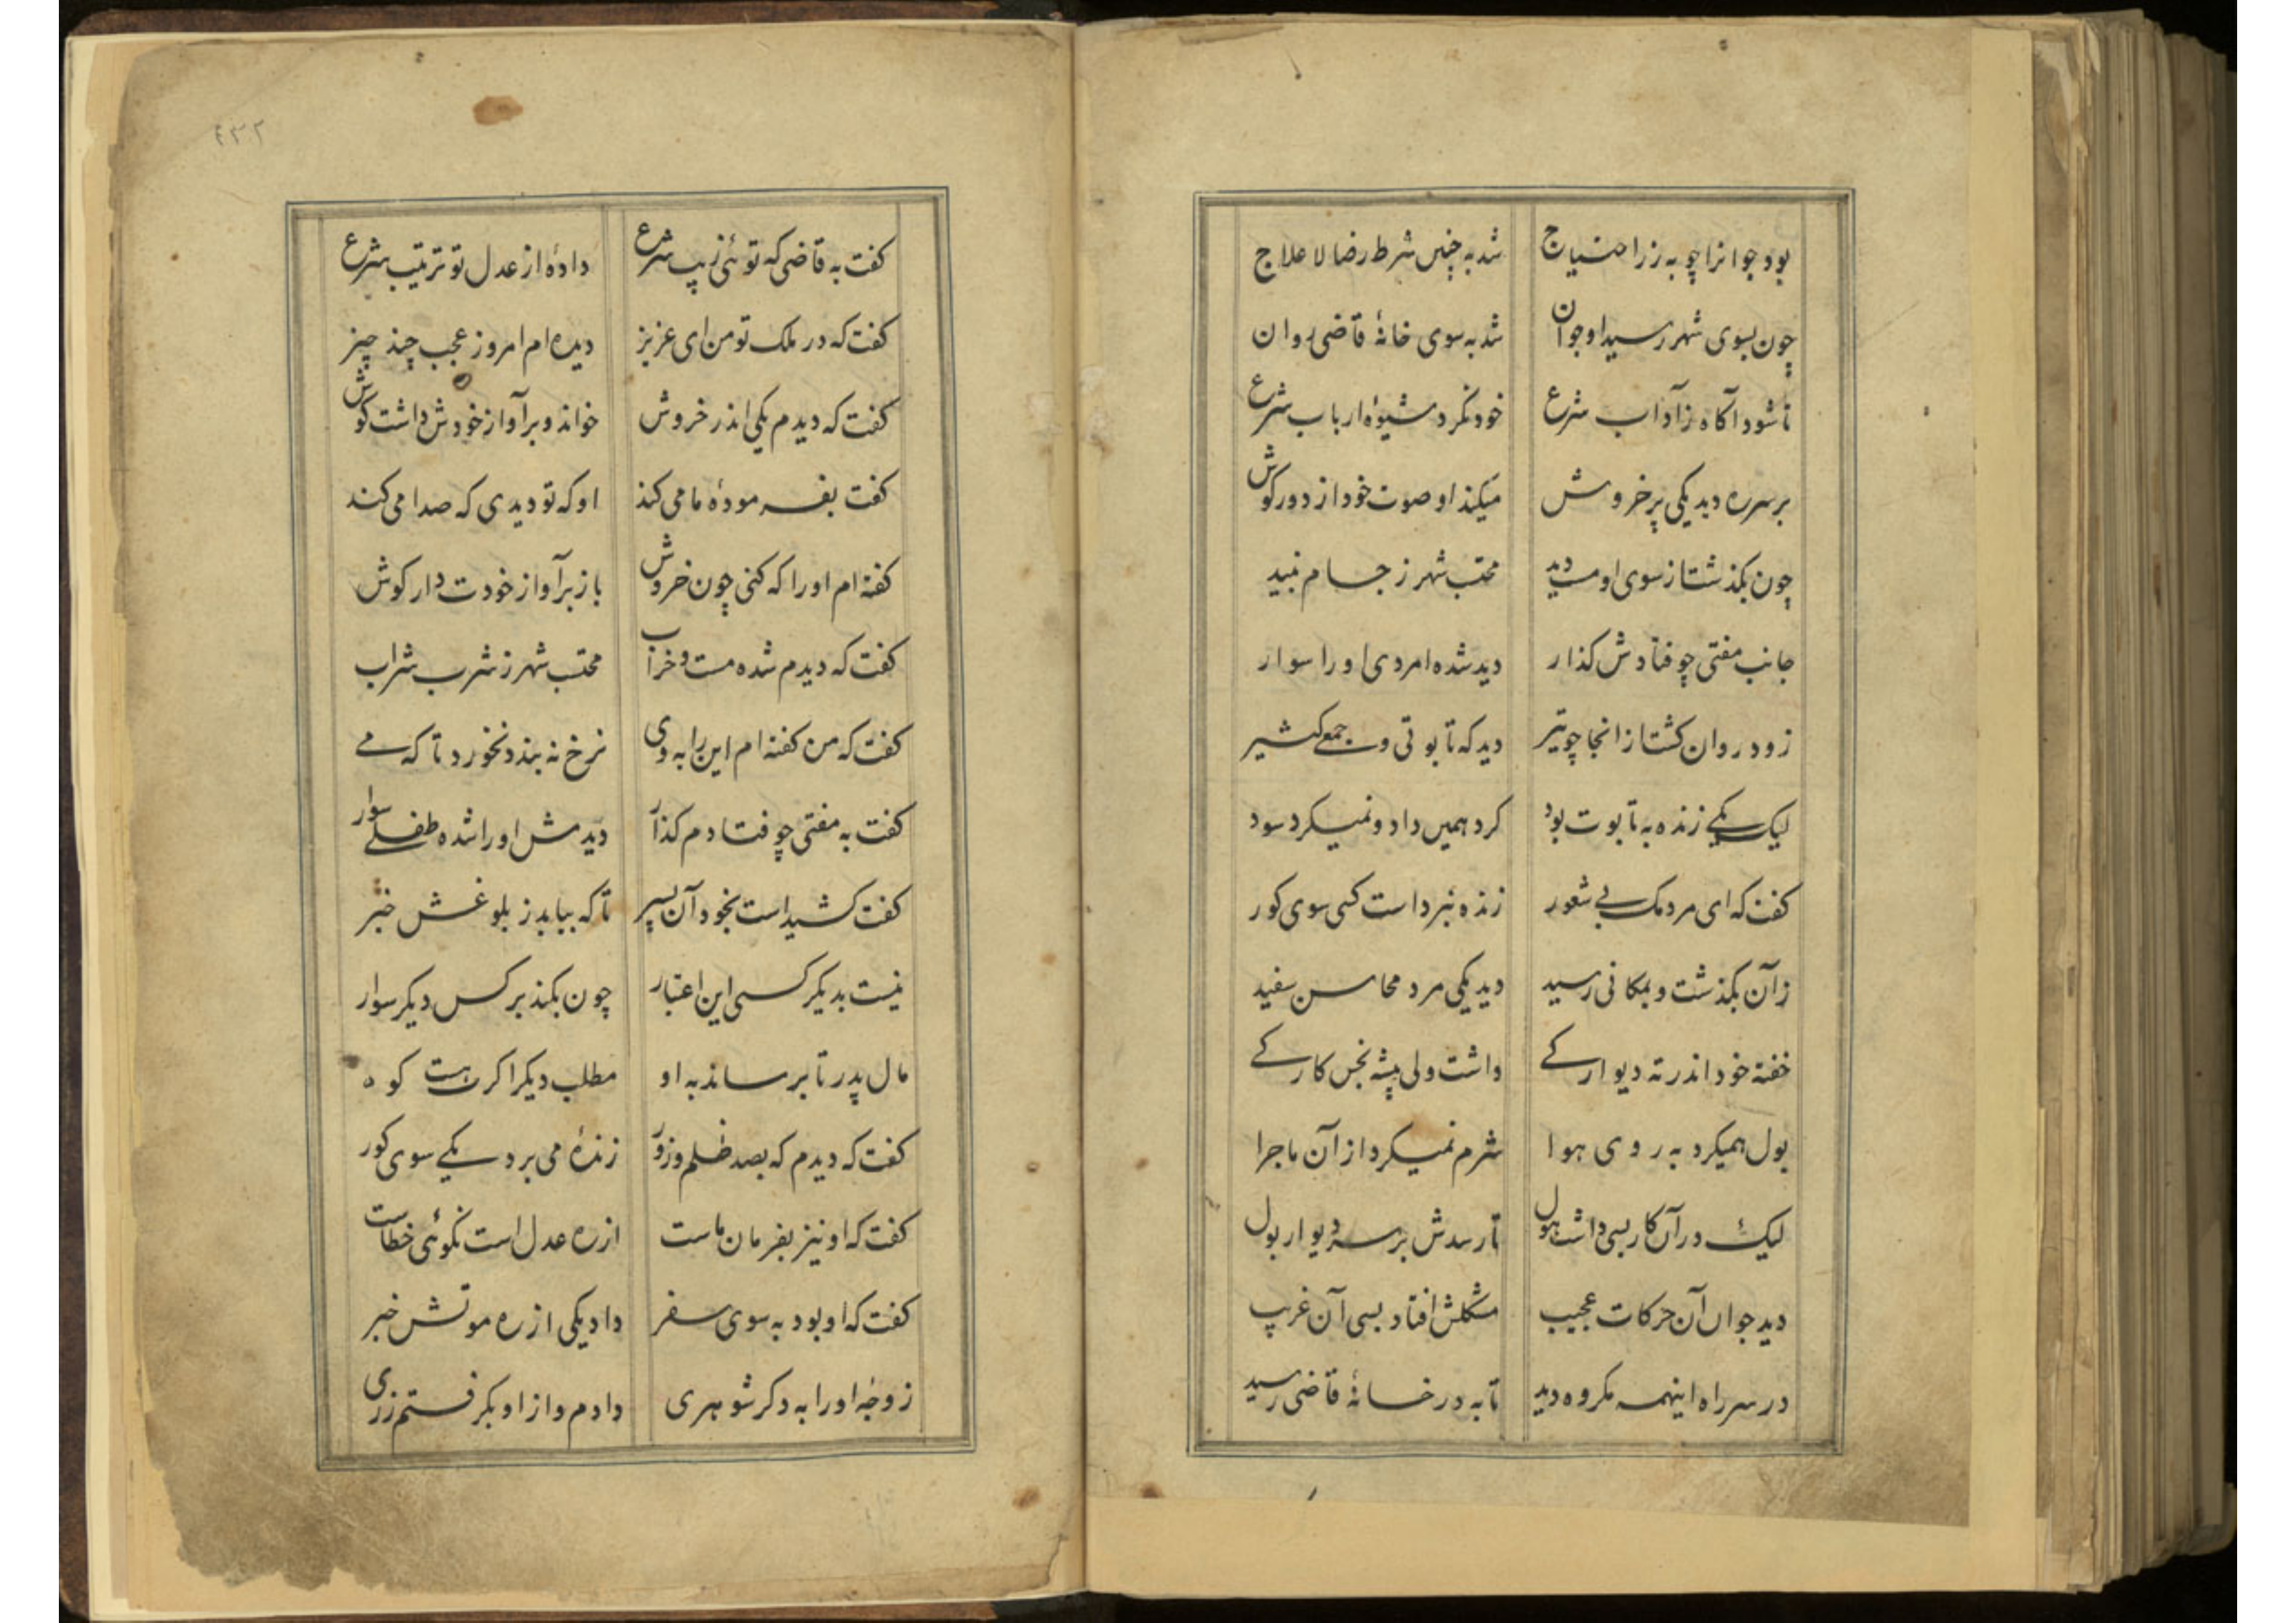 بود جوانرا چو به زر احتیاج شد به چنین شرط رضا لا علاج
چون بسوی شهر رسید او جوان شد به سوی خانهٔ قاضی روان
تا شود آگاه ز آداب شرع خود نگرد شیوهٔ ارباب شرع
بر سر ره دید یکی پر خروش میکند او صوت خود از دور گوش
چون بگذشت از سوی او مست دید محتسب شهر ز جام نبید
جانب مفتی چو فتادش گذار دید شده امردی او را سوار
زود روان گشت از انجا چو تیر دید که تابوتی و جمع کثیر
لیک یکی زنده به تابوت بود کرد همین داد و نمیکرد سود
گفت که ای مردمک بی شعور زنده نبرداست کسی سوی گور
زآن بگذشت و بمکانی رسید دید یکی مرد محاسن سفید
خفته خود اندر ته دیوارکی داشت ولی پیشه نجس کارکی
بول همیکرد به روی هوا شرم نمیکرد از آن ماجرا
لیک در آن کار بسی داشت هول تا رسدش بر سر دیوار بول
دید جوان آن حرکات عجیب مشکلش افتاد بسی آن غریب
در سر راه اینهمه مکروه دید تا به در خانهٔ قاضی رسید
۴۳۲
گفت به قاضی که توئی زیب شرع داده از عدل تو ترتیب شرع
گفت که در ملک تو من ای عزیز دیده ام امروز عجب چند چیز
گفت که دیدم یکی اندر خروش خواند و بر آواز خودش داشت گوش
گفت بفرمودهٔ ما می کند او که تو دیدی که صدا می کند
گفته ام او را که کنی چون خروش باز بر آواز خودت دار گوش
گفت که دیدم شده مست و خراب محتسب شهر ز شرب شراب
گفت که من گفته ام این را به وی نرخ نه بندد نخورد تا که می
گفت به مفتی چو فتادم گذار دیدمش او را شده طفلی سوار
گفت کشیداست بخود آن پسر تا که بیابد ز بلوغش خبر
نیست بدیگر کسی این اعتبار چون بکند بر کس دیگر سوار
مال پدر تا برساند به او مطلب دیگر اگرت هست گو
گفت که دیدم که بصد ظلم و زور زندهٔ می برد یکی سوی گور
گفت که او نیز بفرمان ماست از ره عدل است نگوئی خطاست
گفت که او بود به سوی سفر داد یکی از ره موتش خبر
زوجهٔ او را به دگر شوهری دادم و از او بگرفتم زری